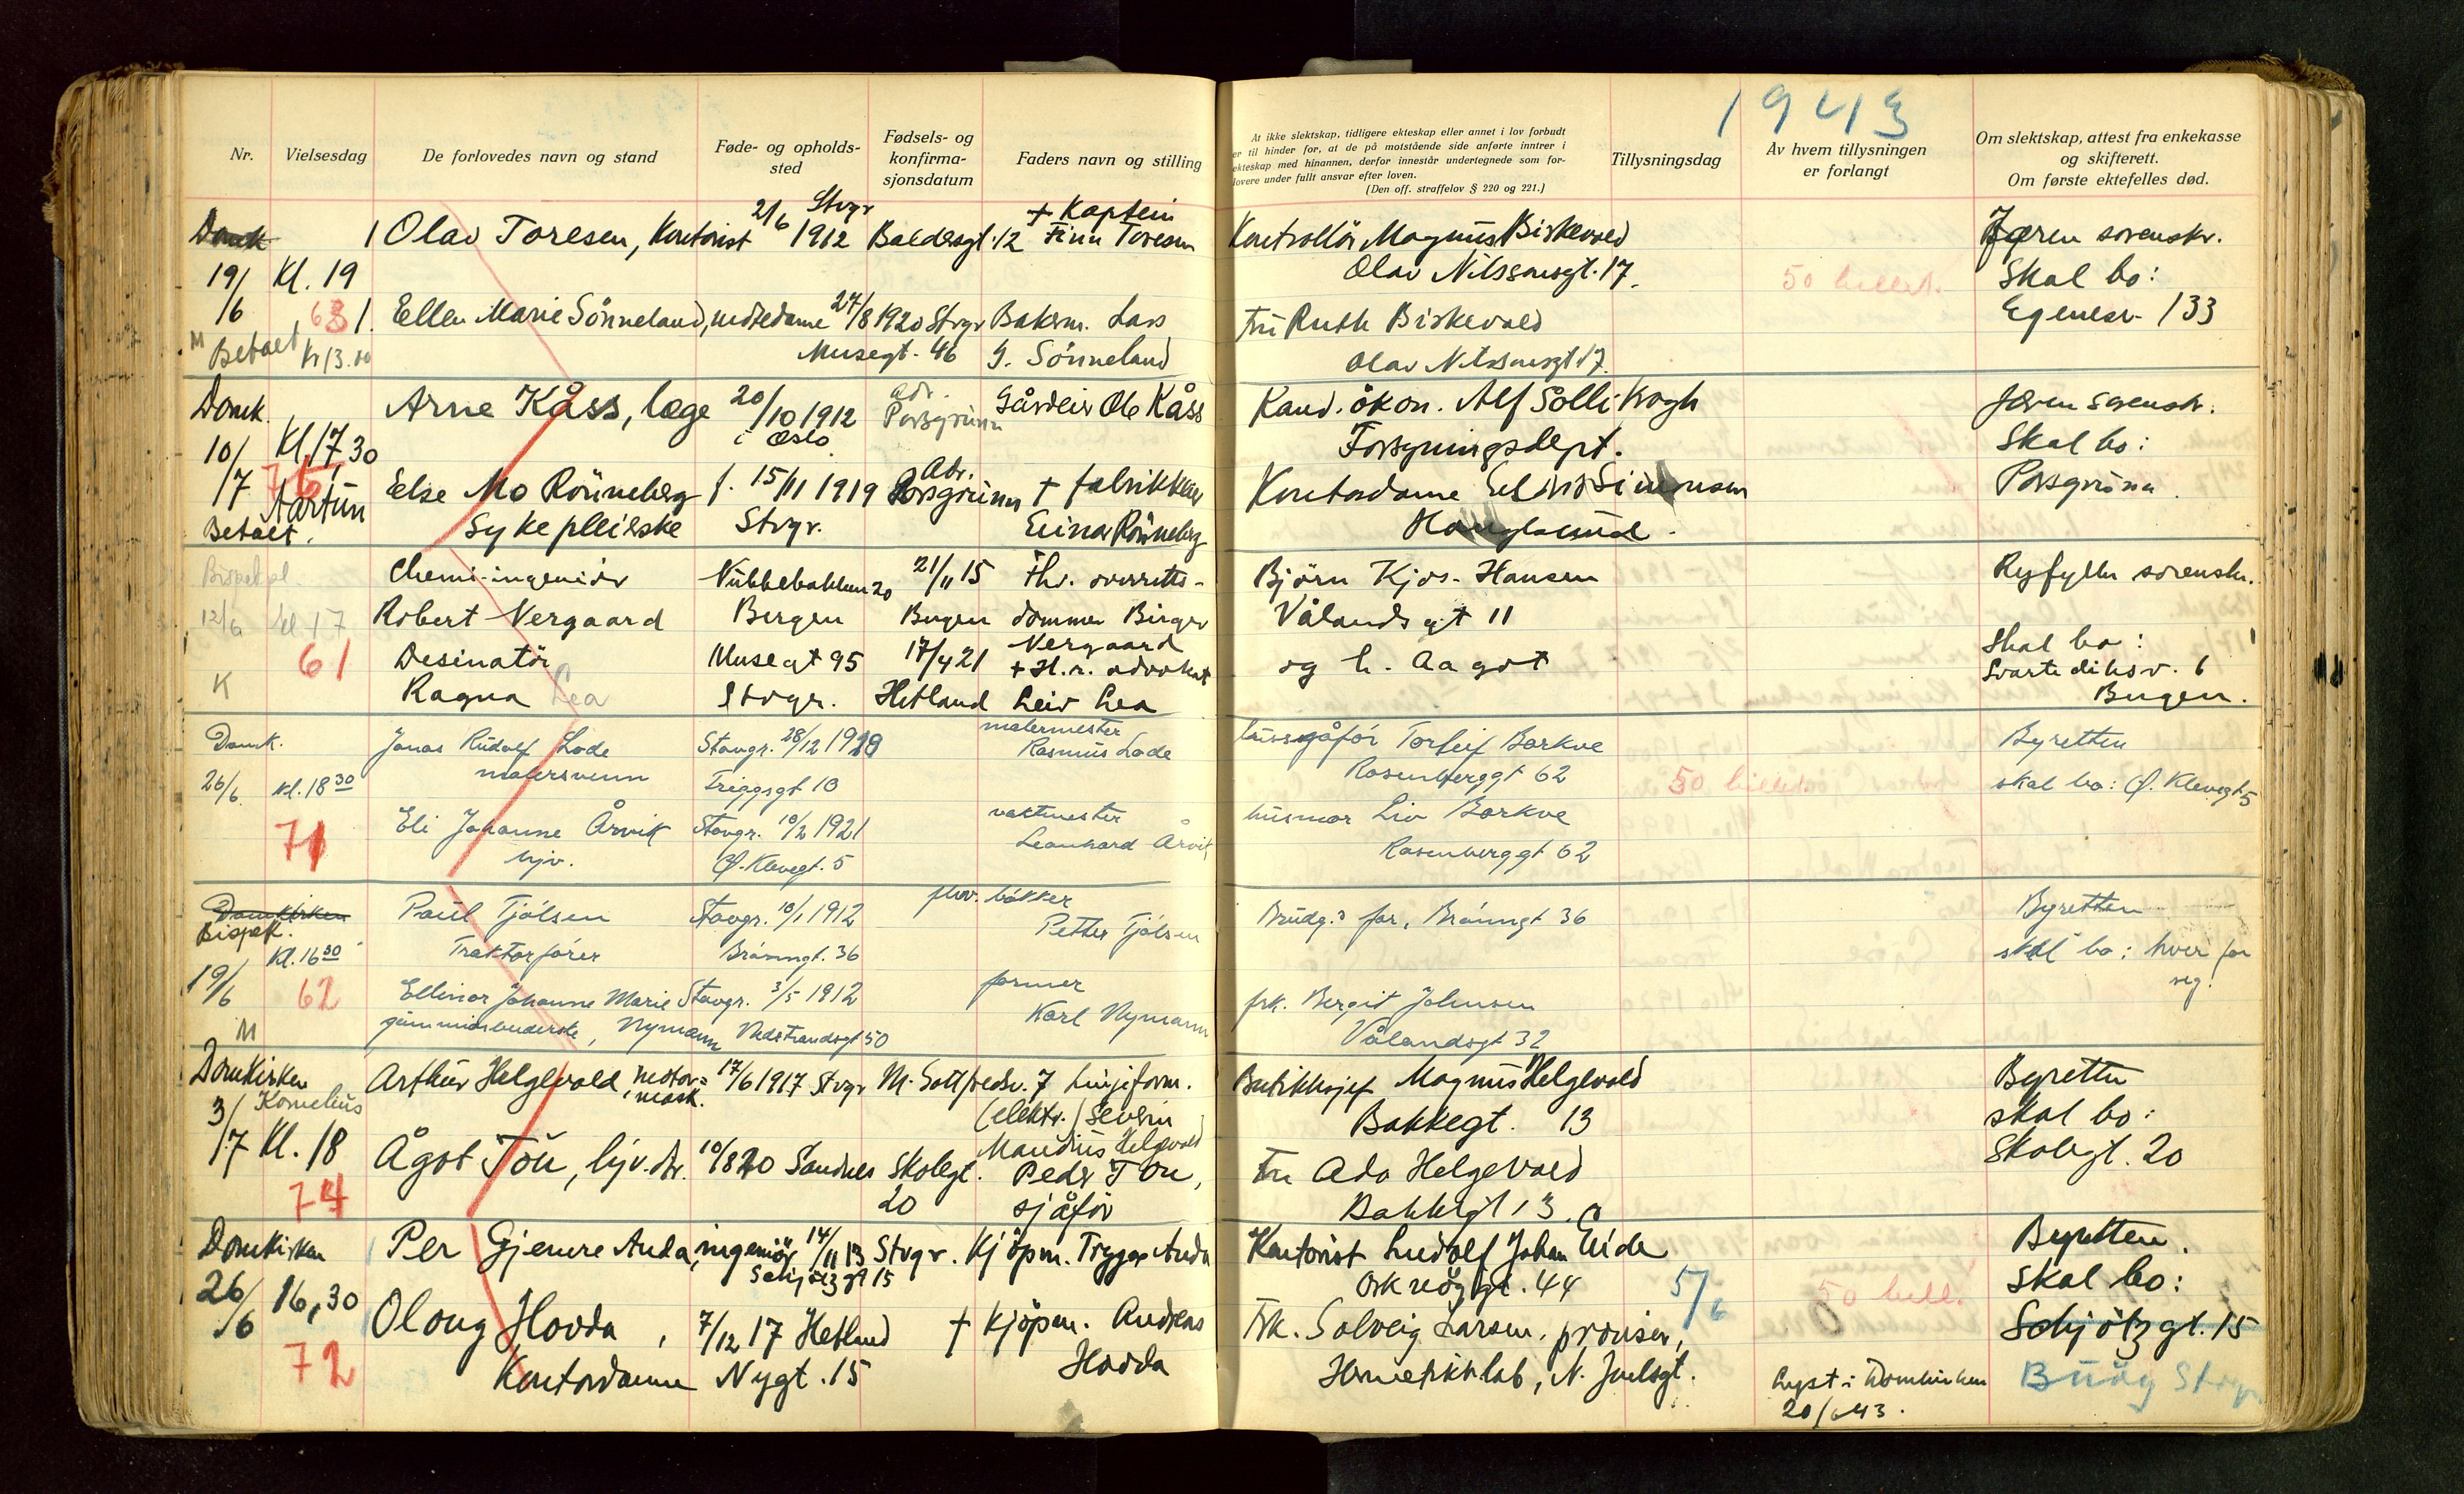 1943
Nr.
Vielsesdag
De forlovedes navn og stand
Føde- og opholds-
sted
Fødsels- og
konfirma-
sjonsdatum
Faders navn og stilling
At ikke slektskap, tidligere ekteskap eller annet i lov forbudt
er til hinder for, at de på motstående side anførte inntrer i
ekteskap med hinannen, derfor innestår undertegnede som for-
lovere under fullt ansvar efter loven.
(Den off. straffelov § 220 og 221.)
Tillysningsdag
Av hvem tillysningen
er forlangt
Om slektskap, attest fra enkekasse
og skifterett.
Om første ektefelles død.
Domk
19/6 Kl. 19
63
M Betalt Kr 13.00
Olav Toresen, Kontorist 21/6 1912 Stvgr Baldersgt. 12
+ Kaptein
Finn Toresen
Ellen Marie Sönneland, 27/8 1920 Stvgr Bakerm. Lars
Musegt. 46 G. Sönneland
Kontrollör Magnus Birkevold
Olav Nilssonsgt. 17.
fru Ruth Birkevold
Olav Nilssonsgt 17.
50 billet.
Jæren sorenskr.
Skal bo:
Egenesv. 133
Domk.
10/7 Kl. 17 30
75
Aartun
Betalt.
Arne Kåss, læge 20/10 1912
i Oslo
adr.
Porsgrunn
Gårdeier Ole Kåss
Else Mo Rönneberg f. 15/11 1919
Sykepleierske Stvgr.
Adr.
Porsgrunn
+ fabrikkeier
Einar Rönneberg
Kand. ökon. Alf Solli Krogh
Forsyningsdept.
Kontordame Simonsen
Jæren sorenskr.
Skal bo:
Porsgrunn.
Bispekpl.
12/6 kl 17
61
K
Chemi-ingeniör Nubbebakken 20 21/11 15 fhv. overretts-
Robert Vergaard Bergen Bergen dommer Birger
Vergaard
Desinatör Musegt 95 17/4 21 + H.r. advokat
Ragna Lea Stvgr. Hetland Leiv Lea
Björn Kjos-Hansen
Vålandsgt 11
og h. Aagot
Ryfylke sorenskr.
Skal bo:
Svartediksv. 6
Bergen.
Domk.
26/6 kl. 18 30
71
Jonas Rudolf Lode Stavgr. 28/12 1920
malersvenn Triggsgt 10
malermester
Rasmus Lode
Eli Johanne Årvik Stavgr. 10/2 1921
hjv. Ø. Klevegt. 5
vaktmester
Leonhard Årvik
Torleif Barkve
Rosenberggt 62
husmor Liv Barkve
Rosenberggt 62
50 billet.
Byretten
skal bo: Ø. Klevegt 5
Domkirken
Bispek.
Kl. 16 30
19/6 62
M
Paul Tjölsen Stavgr. 10/1 1912
Traktorförer Bråvingt. 36
fhv. båkker
Petter Tjölsen
Ellinor Johanne Marie Stavgr. 3/5 1912
gummiarbeiderske, Nymann Nedstrandsgt 50
former
Karl Nymann
Brudg.s far, Bråvingt 36
frk. Bergit Johnsen
Vålandsgt 32
Byretten
skal bo: hver for
seg.
Domkirken
3/7 Kornelius
Kl. 18
74
Arthur Helgevold, motor- 17/6 1917 Stvgr M. Gottfredsv. 7 Linjeform.
mask. (elektr.) Severin
Maudius Helgevold
Ågot Tou, hjv. 10/8 20 Sandnes Skolegt. 20
Peder Tou,
sjåför
Butikksjef Magnus Helgevold
Bakkegt. 13
Fru Ada Helgevold
Bakkegt 13.
Byretten
skal bo:
Skolegt. 20
Domkirken
26/6 16,30
72
Per Gjemre Auda, ingeniör 14/11 13 Stvgr. Kjöpm. Trygve Auda
Schjötzgt 15
Olaug Hovda, 7/12 17 Hetland + Kjöpm. Andreas
Kontordame Nygt. 15 Hovda
Kontorist Ludolf Johan Eide
gt. 44
Frk. Solveig Larsen,
Hermetikklab, N. Juelsgt.
5/6
50 bill.
Lyst i Domkirken
20/6 43.
Byretten.
Skal bo:
Schjötzgt. 15
Buöy Stvgr